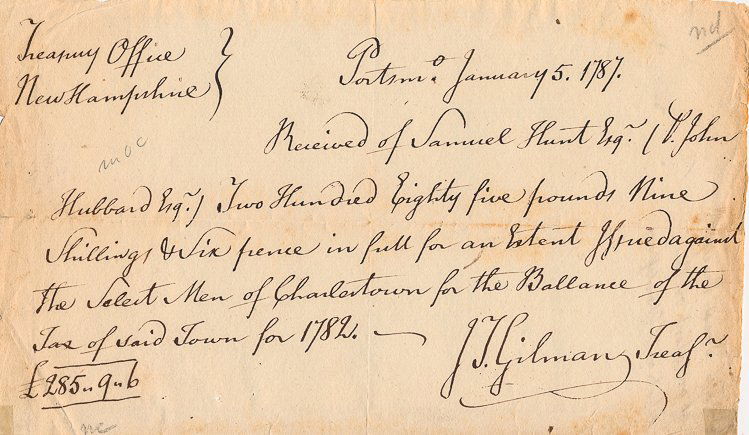 nd
Treasury Office
New Hampshire
Portsmo. January 5. 1787.
moc
Received of Samuel Hunt Esqr. ( P. John
Hubbard Esqr.) Two Hundred Eighty five pounds Nine
Shillings & Six pence in full for an Extent Issued against
the Select Men of Charlestown for the Ballance of the
Tax of said Town for 1782. —
JT Gilman Treasr.
£285 " 9 " 6